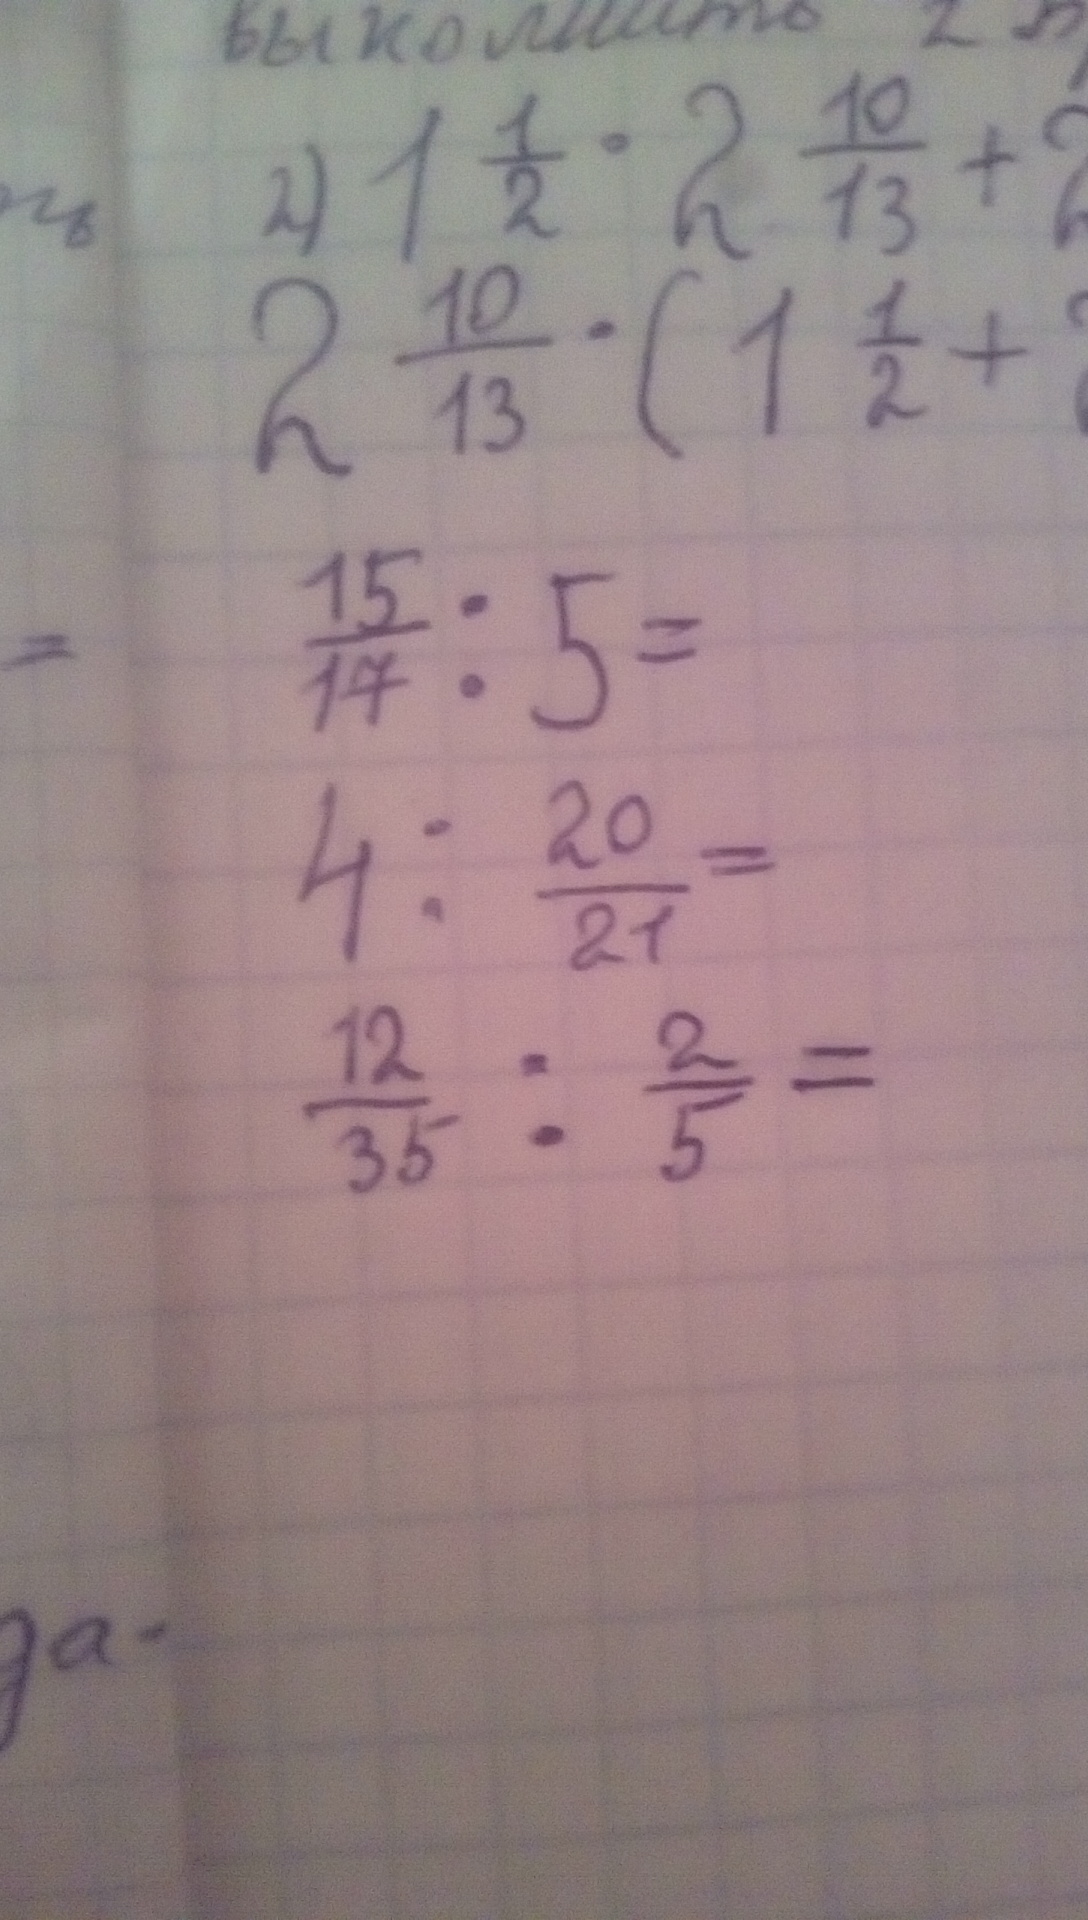 выполнить 2
2) 1 1/2 · 2 10/13 + 2
2 10/13 · (1 1/2 +
= 15/17 : 5 =
4 : 20/21 =
12/35 : 2/5 =
да-